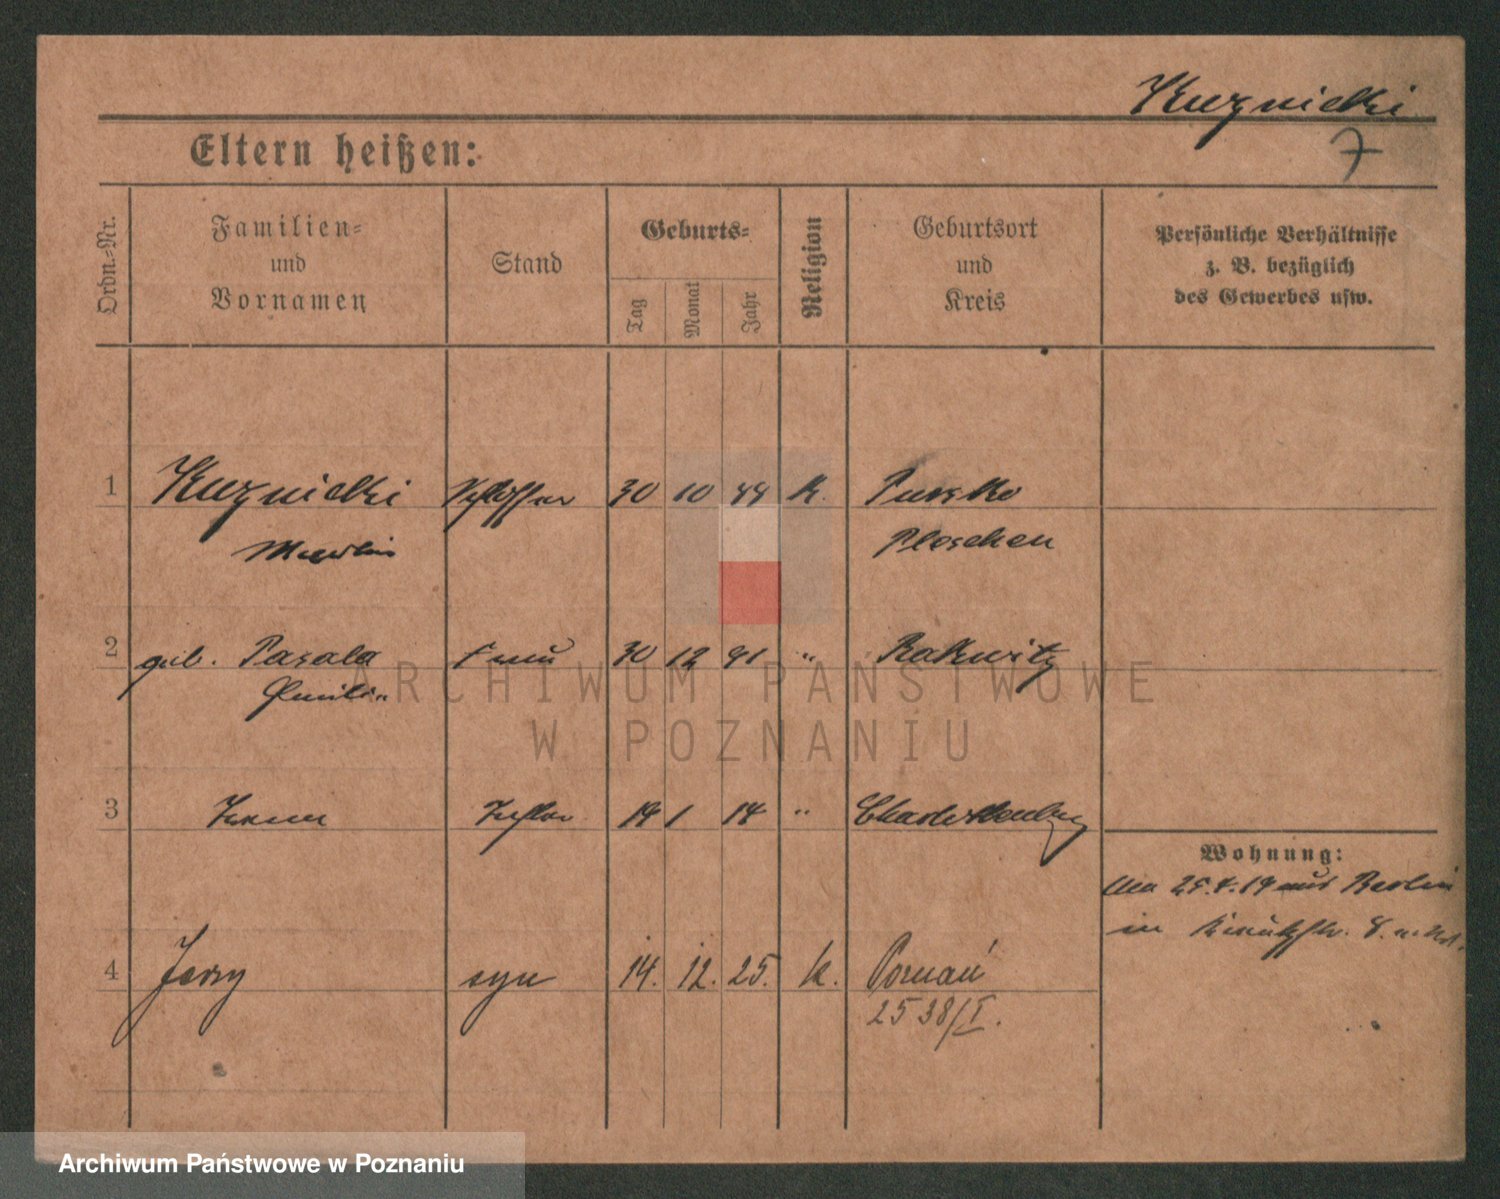 Kuznicki
7
Eltern heißen:
Ordn.-Nr.
Familien-
und
Vornamen
Stand
Geburts-
Tag
Monat
Jahr
Religion
Geburtsort
und
Kreis
Persönliche Verhältnisse
z. B. bezüglich
des Gewerbes usw.
1 Kuznicki Schlosser 30 10 k.
Pleschen
2 geb. Pasala Frau 30 12 91 " Rakwitz
3 Tochter 14 1 14 " Charlottenburg
Wohnung:
25.4.19 aus Berlin
in
4 Jerzy syn 14. 12. 25. k. Poznań
2538/I.
ARCHIWUM PAŃSTWOWE
W POZNANIU
Archiwum Państwowe w Poznaniu